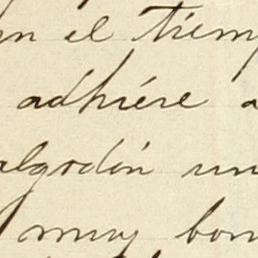 en el tiemp
adhiére a
algodón un
muy bon